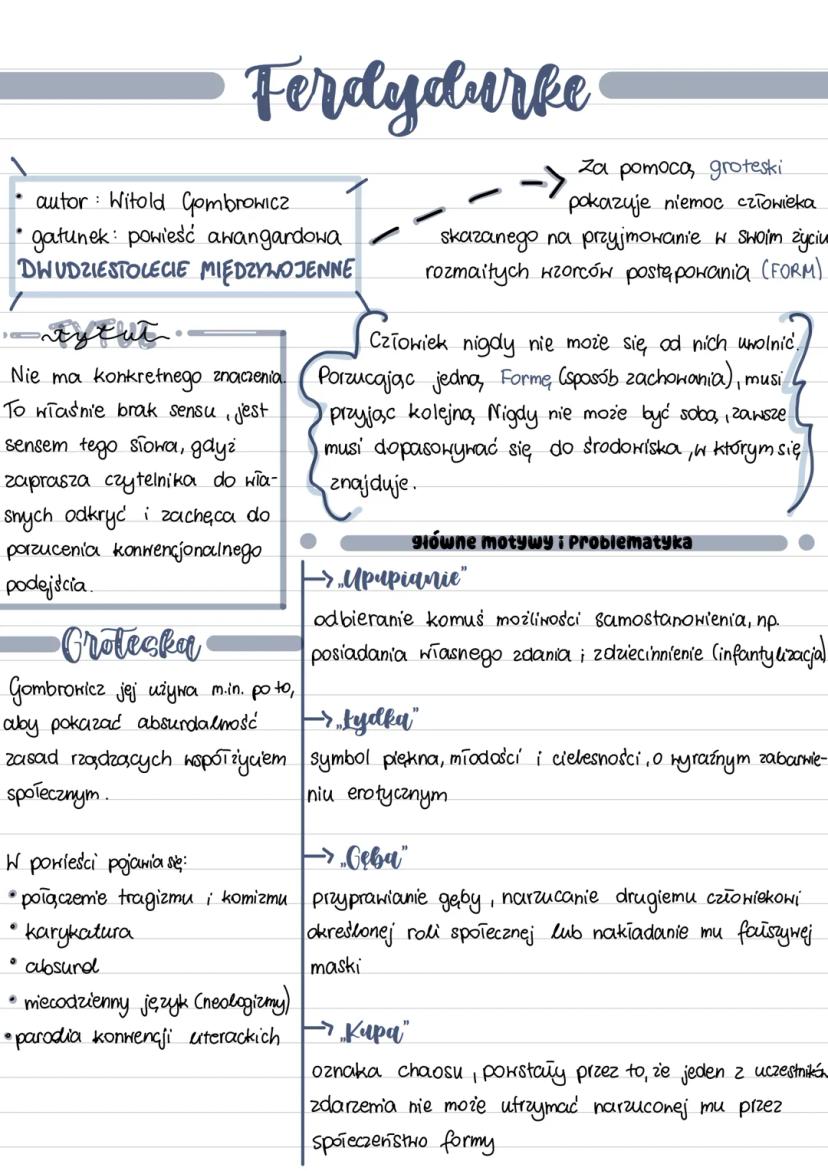 Ferdydurke
• autor : Witold Gombrowicz
• gatunek: powieść awangardowa
DWUDZIESTOLECIE MIĘDZYWOJENNE
Za pomocą groteski
pokazuje niemoc człowieka
skazanego na przyjmowanie w swoim życiu
rozmaitych wzorców postępowania (FORM)
Człowiek nigdy nie może się od nich uwolnić.
Porzucając jedną Formę (sposób zachowania), musi
przyjąc kolejną. Nigdy nie może być sobą, zawsze
musi dopasowywać się do środowiska, w którym się
znajduje.
tytuł
Nie ma konkretnego znaczenia.
To właśnie brak sensu, jest
sensem tego słowa, gdyż
zaprasza czytelnika do wła-
snych odkryć i zachęca do
porzucenia konwencjonalnego
podejścia.
Groteska
Gombrowicz jej używa m.in. po to,
aby pokazać absurdalność
zasad rządzących współżyciem
społecznym.
W powieści pojawia się:
• połączenie tragizmu i komizmu
• karykatura
• absurd
• niecodzienny język (neologizmy)
• parodia konwencji literackich
główne motywy i Problematyka
→ „Upupianie”
odbieranie komuś możliwości samostanowienia, np.
posiadania własnego zdania ; zdziecinnienie (infantylizacja)
→ „Łydka”
symbol piękna, młodości i cielesności, o wyraźnym zabarwie-
niu erotycznym
→ „Gęba”
przyprawianie gęby, narzucanie drugiemu człowiekowi
określonej roli społecznej lub nakładanie mu fałszywej
maski
→ „Kupa”
oznaka chaosu, powstały przez to, że jeden z uczestników
zdarzenia nie może utrzymać narzuconej mu przez
społeczeństwo formy